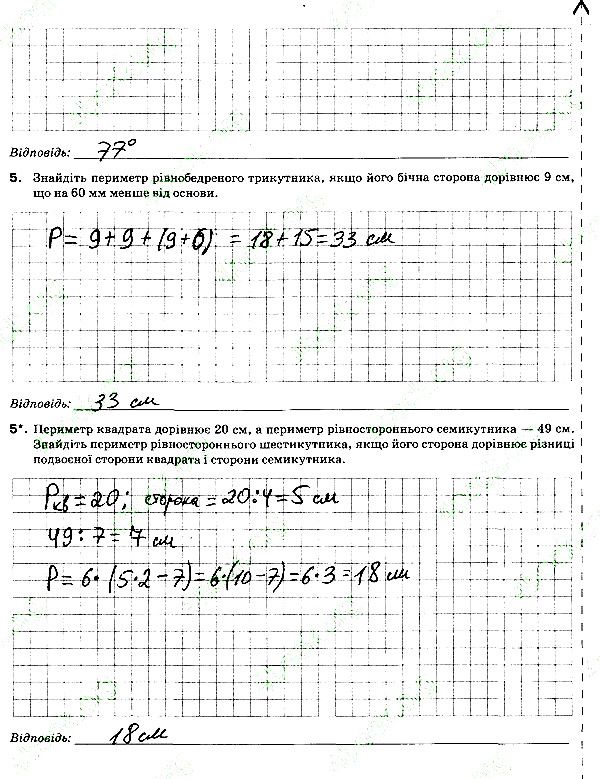 Відповідь: 77°
5. Знайдіть периметр рівнобедреного трикутника, якщо його бічна сторона дорівнює 9 см,
що на 60 мм менше від основи.
P = 9 + 9 + (9 + 6) = 18 + 15 = 33 см
Відповідь: 33 см
5*. Периметр квадрата дорівнює 20 см, а периметр рівностороннього семикутника — 49 см.
Знайдіть периметр рівностороннього шестикутника, якщо його сторона дорівнює різниці
подвоєної сторони квадрата і сторони семикутника.
Pкв = 20; сторона = 20 : 4 = 5 см
49 : 7 = 7 см
P = 6 · (5 · 2 − 7) = 6 · (10 − 7) = 6 · 3 = 18 см
Відповідь: 18 см